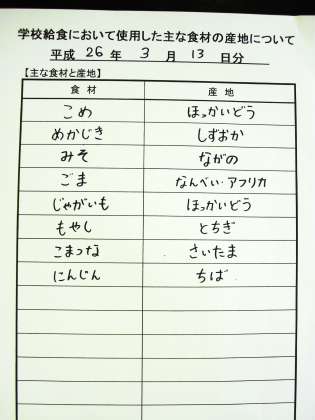 学校給食において使用した主な食材の産地について
平成 26 年 3 月 13 日分
【主な食材と産地】
食材 産地
こめ ほっかいどう
めかじき しずおか
みそ ながの
ごま なんべい・アフリカ
じゃがいも ほっかいどう
もやし とちぎ
こまつな さいたま
にんじん ちば